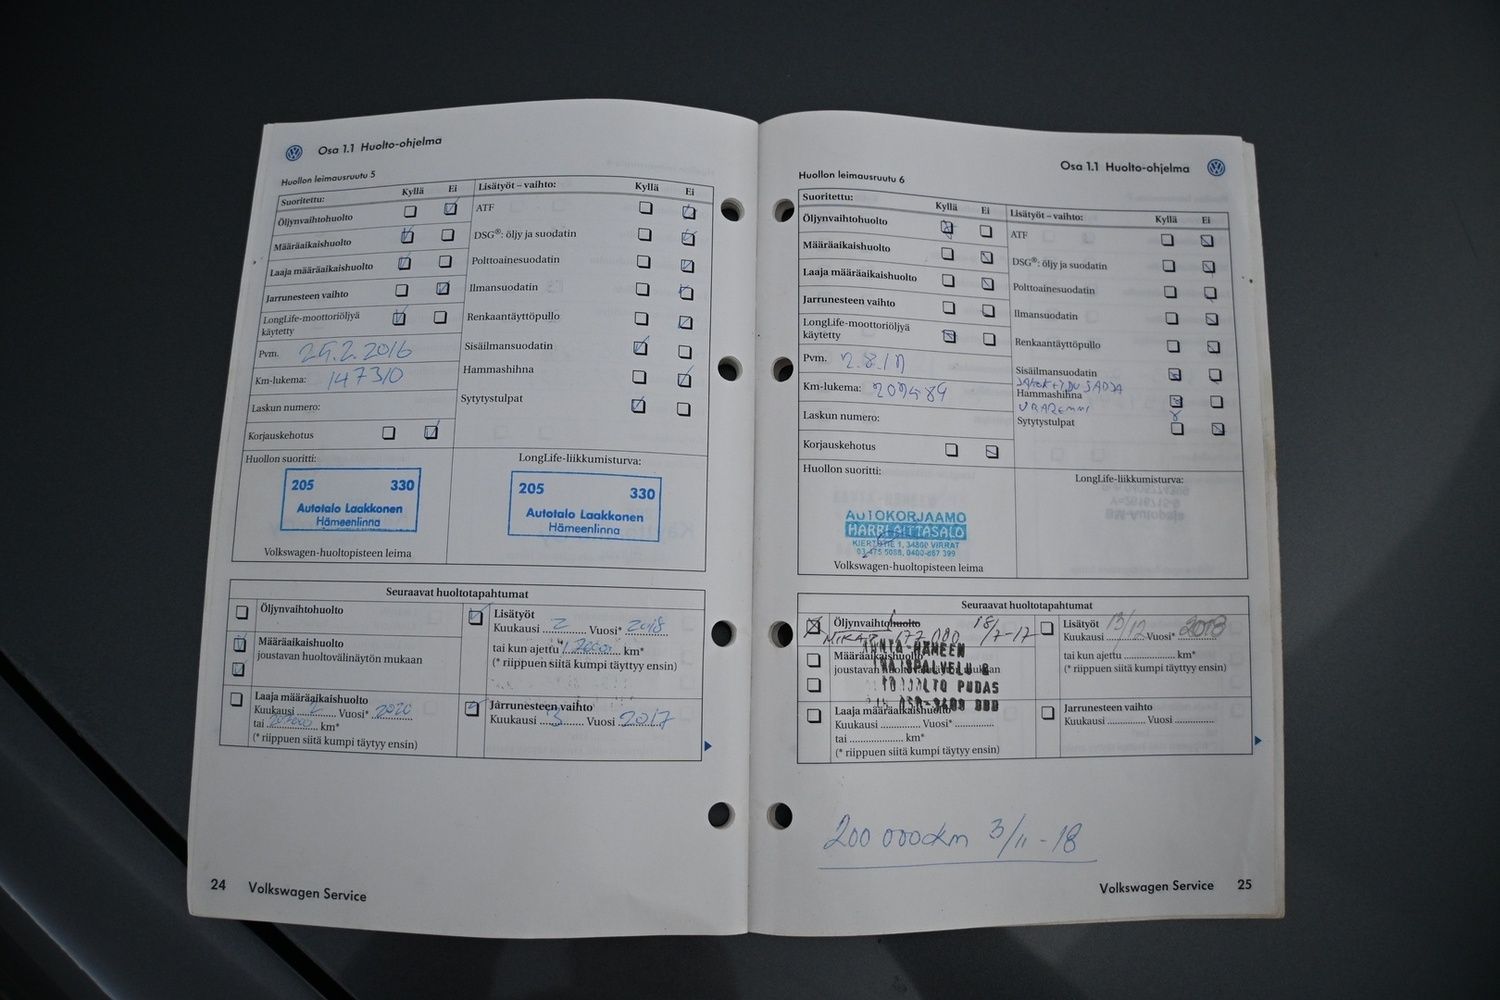 Osa 1.1 Huolto-ohjelma
Huollon leimausruutu 5
Suoritettu: Kyllä Ei
Öljynvaihtohuolto
Määräaikaishuolto
Laaja määräaikaishuolto
Jarrunesteen vaihto
LongLife-moottoriöljyä
käytetty
Pvm. 25.2.2016
Km-lukema: 147310
Laskun numero:
Korjauskehotus
Lisätyöt – vaihto: Kyllä Ei
ATF
DSG®: öljy ja suodatin
Polttoainesuodatin
Ilmansuodatin
Renkaantäyttöpullo
Sisäilmansuodatin
Hammashihna
Sytytystulpat
Huollon suoritti:
205 330
Autotalo Laakkonen
Hämeenlinna
Volkswagen-huoltopisteen leima
LongLife-liikkumisturva:
205 330
Autotalo Laakkonen
Hämeenlinna
Seuraavat huoltotapahtumat
Öljynvaihtohuolto
Määräaikaishuolto
joustavan huoltovälinäytön mukaan
Laaja määräaikaishuolto
Kuukausi 2 Vuosi* 2020
tai km*
(* riippuen siitä kumpi täytyy ensin)
Lisätyöt
Kuukausi 2 Vuosi* 2018
tai kun ajettu km*
(* riippuen siitä kumpi täytyy ensin)
Jarrunesteen vaihto
Kuukausi 3 Vuosi 2017
24 Volkswagen Service
Osa 1.1 Huolto-ohjelma
Huollon leimausruutu 6
Suoritettu: Kyllä Ei
Öljynvaihtohuolto
Määräaikaishuolto
Laaja määräaikaishuolto
Jarrunesteen vaihto
LongLife-moottoriöljyä
käytetty
Pvm.
Km-lukema:
Laskun numero:
Korjauskehotus
Lisätyöt – vaihto: Kyllä Ei
ATF
DSG®: öljy ja suodatin
Polttoainesuodatin
Ilmansuodatin
Renkaantäyttöpullo
Sisäilmansuodatin
Hammashihna
Sytytystulpat
Huollon suoritti:
AUTOKORJAAMO
HARRI AITTASALO
KIERTOTIE 1, 34800 VIRRAT
03-475 5088, 0400-667 399
Volkswagen-huoltopisteen leima
LongLife-liikkumisturva:
Seuraavat huoltotapahtumat
Öljynvaihtohuolto 18/7-17
177 000
Määräaikaishuolto
joustavan huoltovälinäytön mukaan
PUDAS
Laaja määräaikaishuolto
Kuukausi Vuosi*
tai km*
(* riippuen siitä kumpi täytyy ensin)
Lisätyöt
Kuukausi 13/12 Vuosi* 2018
tai kun ajettu km*
(* riippuen siitä kumpi täytyy ensin)
Jarrunesteen vaihto
Kuukausi Vuosi
200 000km 3/11-18
Volkswagen Service 25